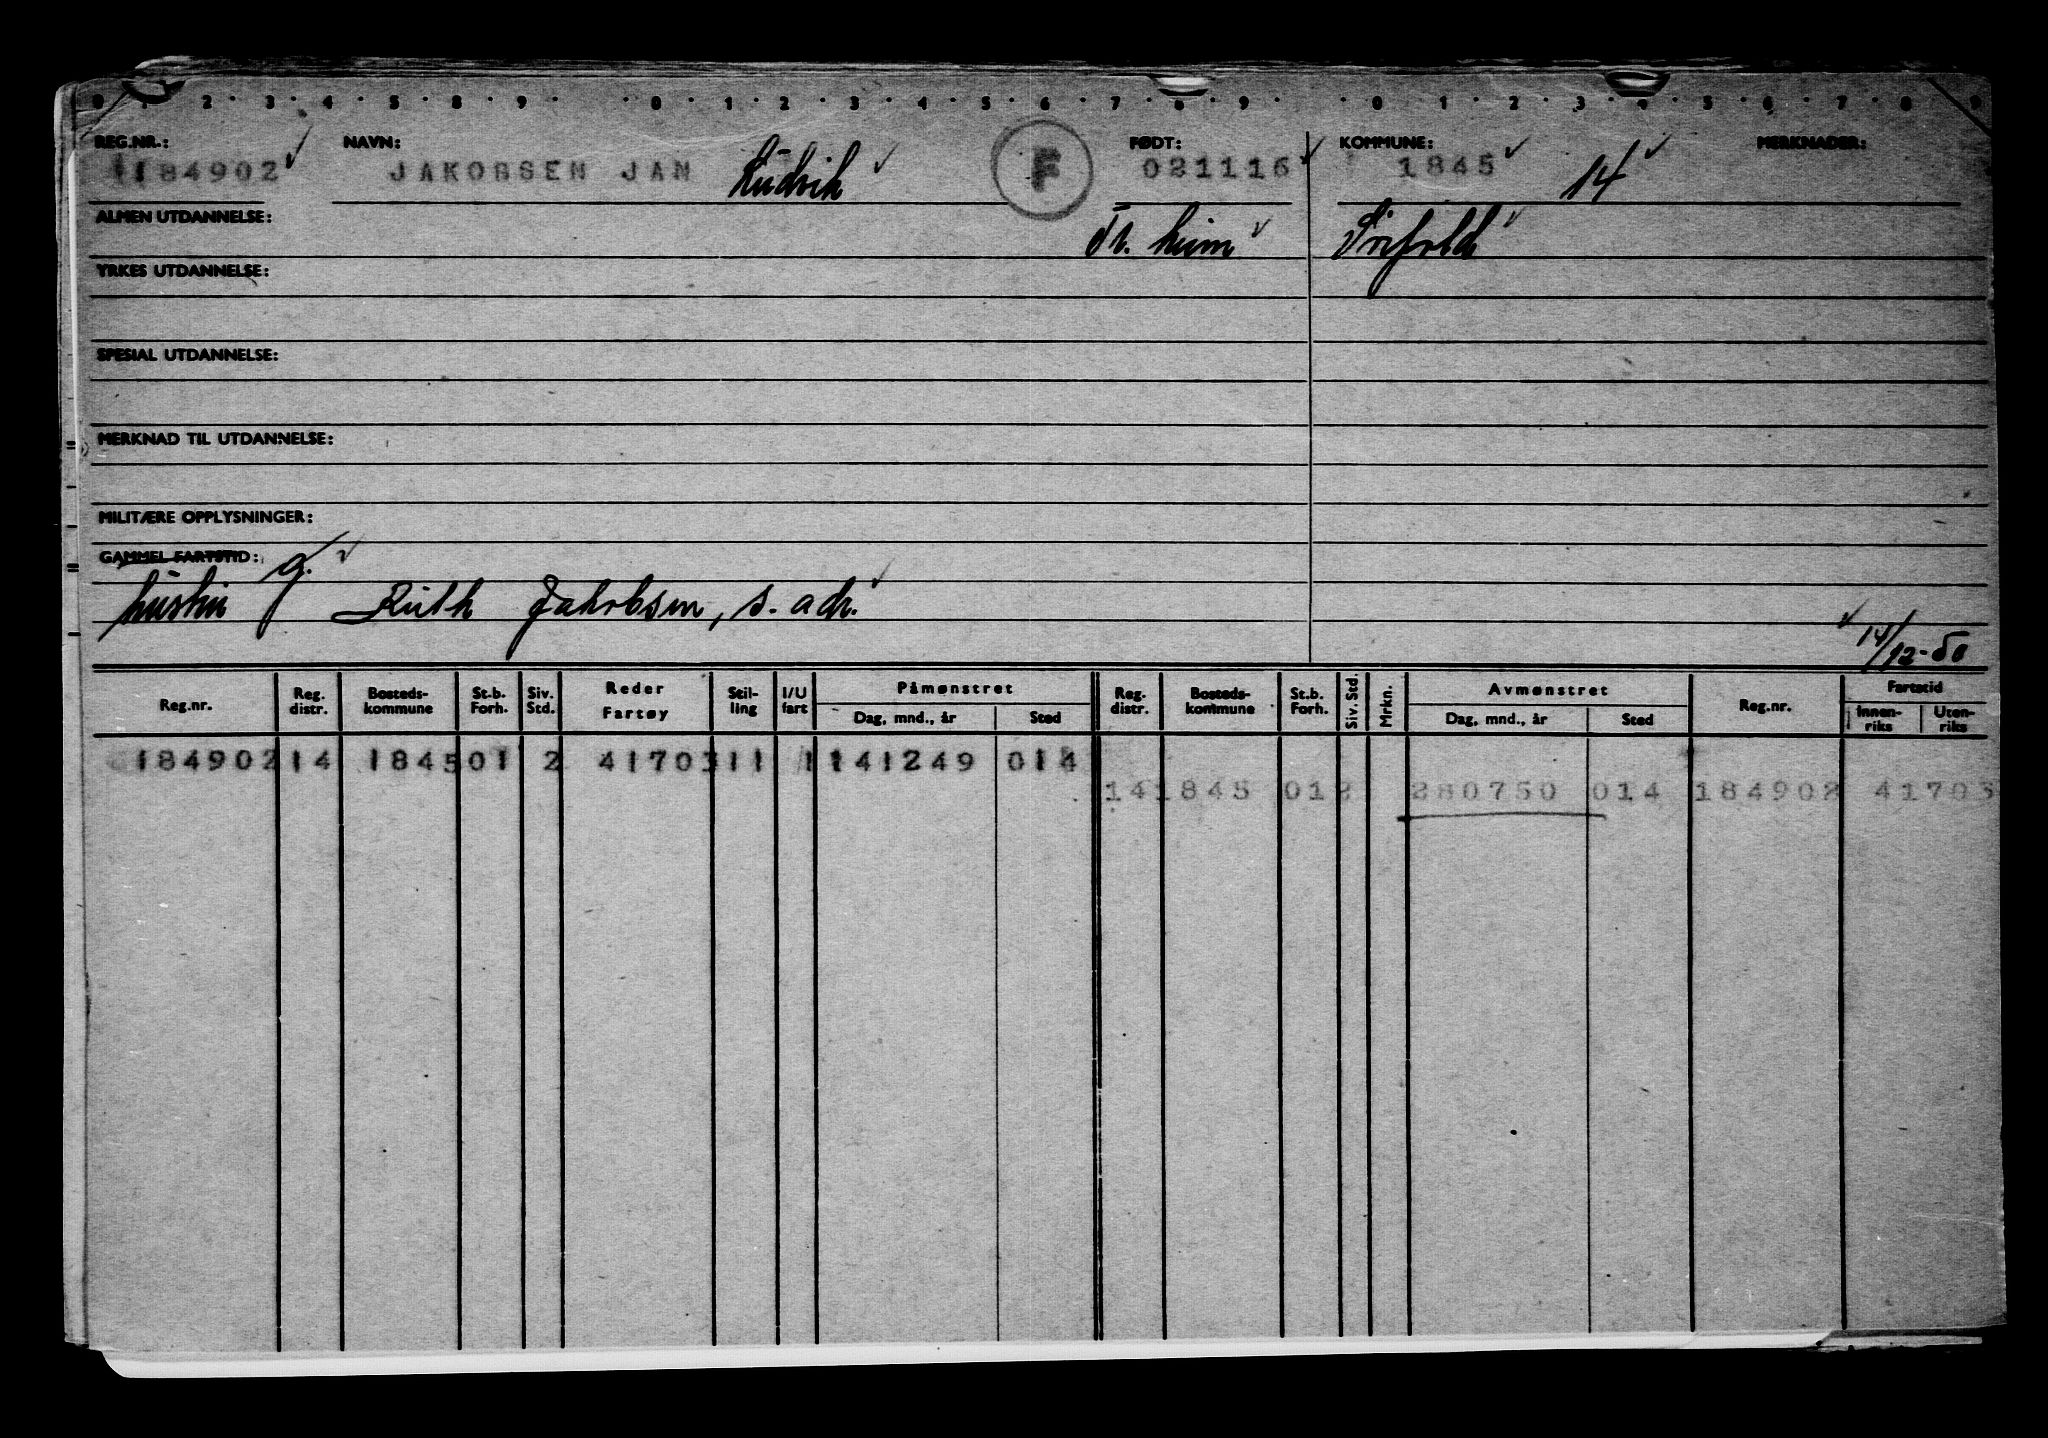 0 1 2 3 4 5 8 9 0 1 2 3 4 5 6 7 8 9 0 1 2 3 4 5 6 7 8 9
REG.NR.: NAVN: FØDT: KOMMUNE: MERKNADER:
184902 JAKOBSEN JAN Ludvik F 021116 1845 14
ALMEN UTDANNELSE: Tr. heim
YRKES UTDANNELSE:
SPESIAL UTDANNELSE:
MERKNAD TIL UTDANNELSE:
MILITÆRE OPPLYSNINGER:
GAMMEL FARTSTID: g.
hustru Ruth Jakobsen, s. adr.
14/12-50
Reg.nr. Reg. distr. Bosteds-kommune St.b. Forh. Siv. Std. Reder Fartøy Stil-ling I/U fart Påmønstret Dag, mnd., år Sted Reg. distr. Bosteds-kommune St.b. Forh. Siv. Std. Mrkn. Avmønstret Dag, mnd., år Sted Reg.nr. Fartstid Innen-riks Uten-riks
184902 14 1845 01 2 41703 11 1 141249 014
14 1845 01 2 280750 014 184902 41703